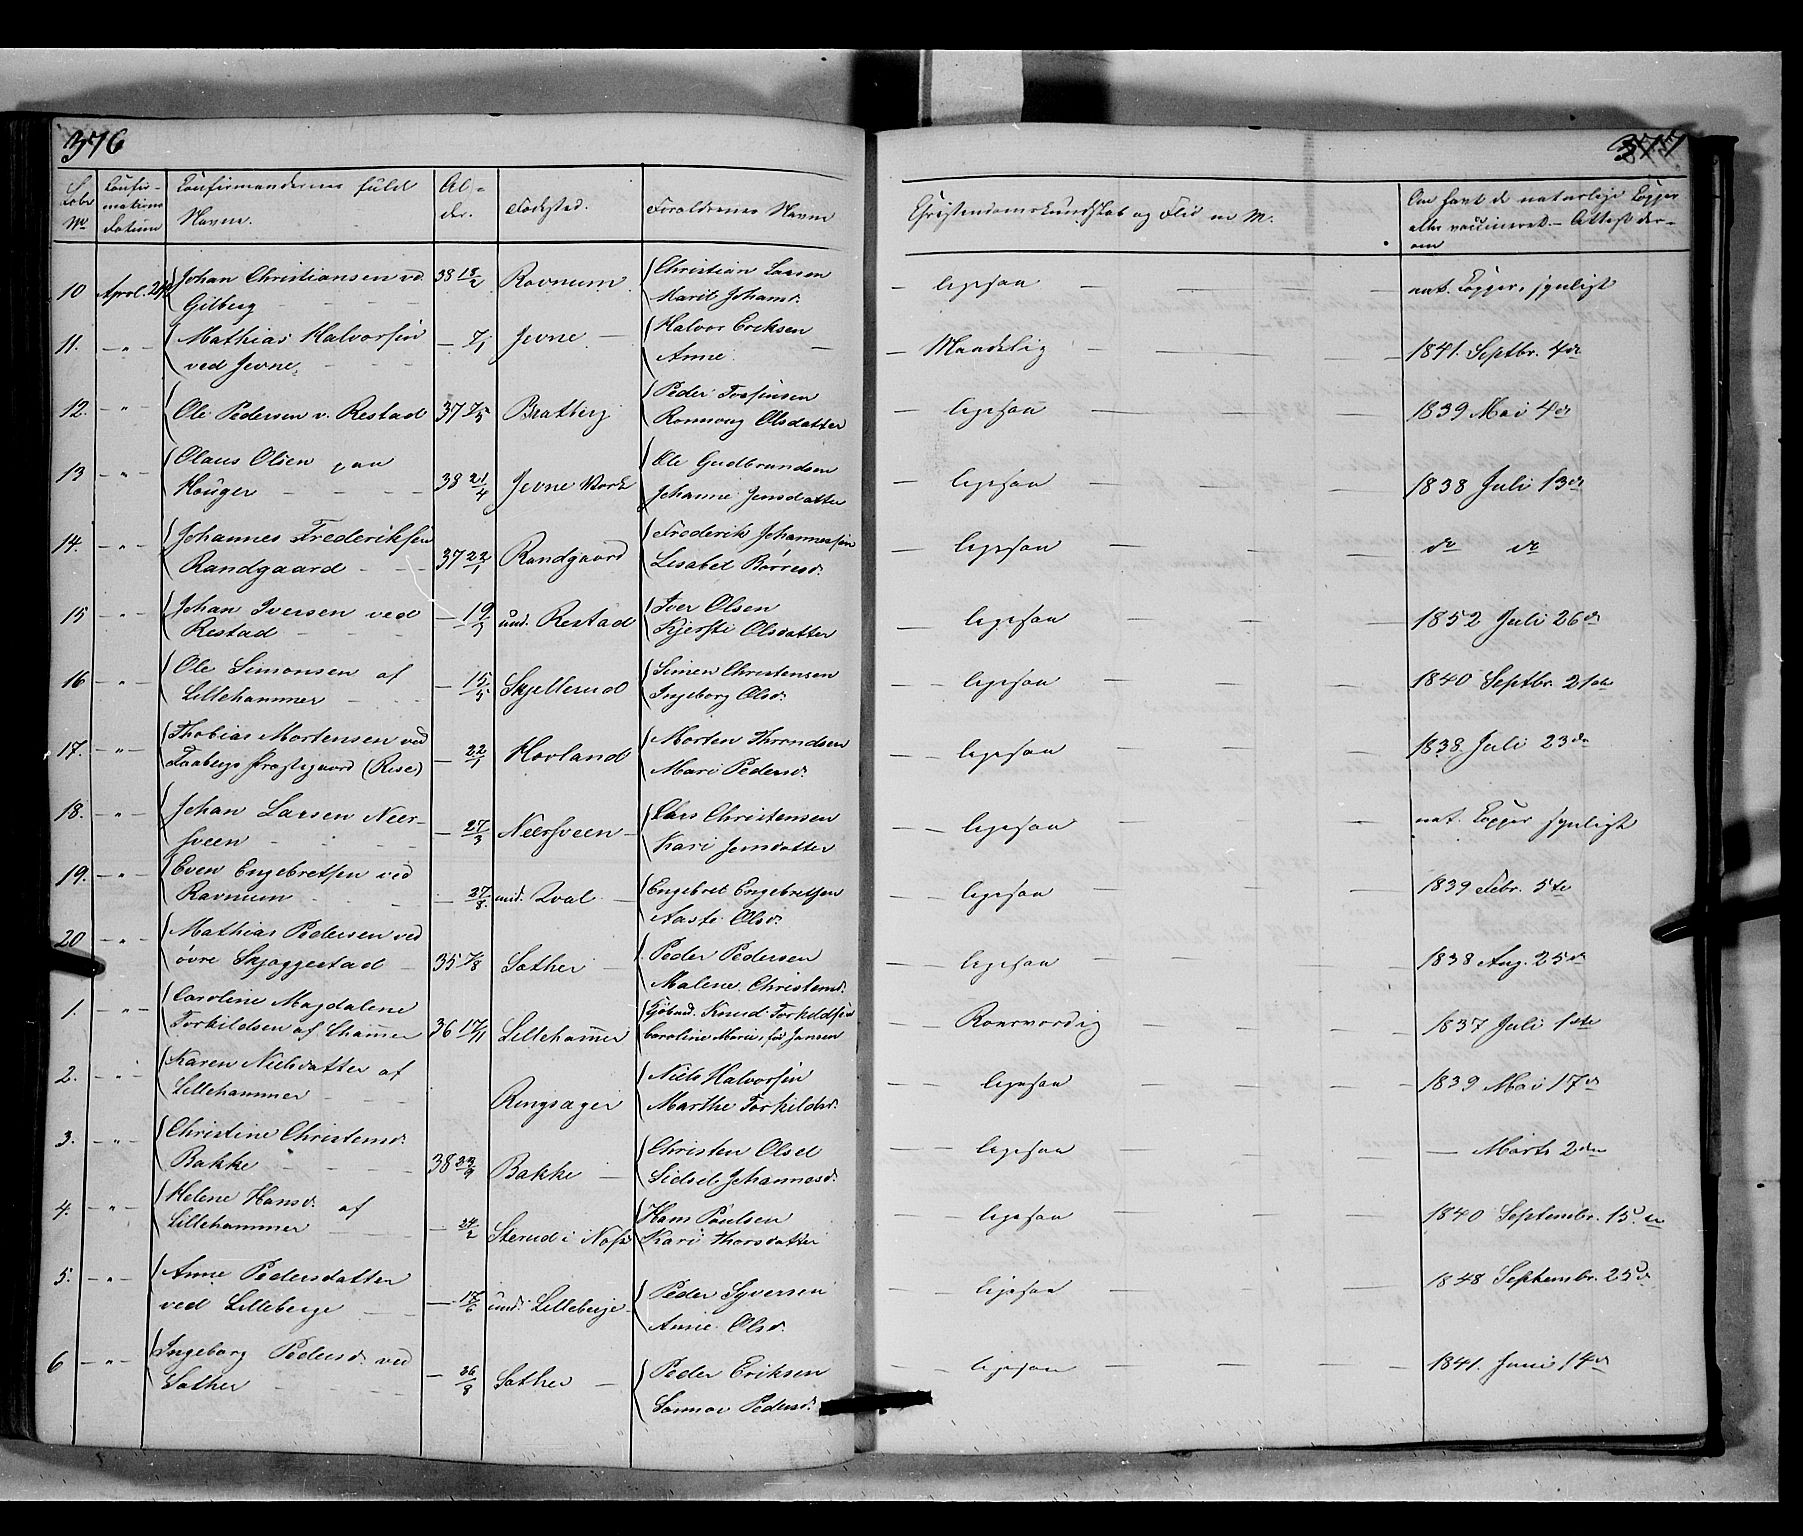 376
377
Løbe No
Confirmations Datum
Confirmandernes fulde Navne.
Alder.
Fødested.
Forældrenes Navne
Christendomskundskab og Flid m. M.
Om havt de naturlige Kopper eller vaccineret. - Attest derom
10 April 24 Johan Christiansen ved Gilberg 38 18/2 Rovnum Christian Larsen Marit Johansd. — ligesaa — nat. Kopper, synligt
11. — " — Mathias Halvorsen ved Jevne — 7/1 Jevne — Halvor Eriksen Anne — Maadelig — 1841. Septbr. 4de
12. — " Ole Pedersen v. Restad 37 7/5 Bratberg Peder Torsteinsen Ronnoug Olsdatter — ligesaa — 1839 Mai 4de
13 — " Olaus Olsen paa Houger 38 21/4 Jevne Work Ole Gudbrandsen Johanne Jensdatter — ligesaa — 1838 Juli 13de
14. — " — Johannes Frederiksen Randgaard 37 22/1 Randgaard Frederik Johannesen Lisabet Børresd. — ligesaa — do do
15 — " — Johan Iversen ved Restad — 19/3 und. Restad Iver Olsen Kjersti Olsdatter — ligesaa — 1852 Juli 26de
16 — " — Ole Simonsen af Lillehammer — 15/5 Skjellerud Simen Christensen Ingeborg Olsd. — ligesaa — 1840 Septbr. 21de
17. — " — Thobias Mortensen ved Faabergs Præstegaard (Rise) — 22/1 Hovland Morten Throndsen Mari Pedersd. — ligesaa — 1838 Juli 23de
18. — " — Johan Larsen Neersveen — 27/3 Neersveen — Lars Christensen Kari Jensdatter — ligesaa — nat. Kopper synligt
19. — " — Even Engebretsen ved Rovnum — 27/8 und. Hval — Engebret Engebretsen Aaste Olsd. — ligesaa — 1839 Febr. 5te
20 — " — Mathias Pedersen ved øvre Skjæggestad 35 7/8 Sæther — Peder Pedersen Malene Christensd. — ligesaa — 1838 Aug. 25de
1. — " — Caroline Magdalene Torkildsen af Lhammer 36 17/11 Lillehammer Kjøbmd. Knud Torkildsen Caroline Marie, fød Jansen — Roesværdig — 1837 Juli 1ste
2. — " — Karen Nielsdatter af Lillehammer Ringsager Niels Halvorsen Marthe Torkildsd. — ligesaa — 1839 Mai 17de
3. — " — Christine Christensd. Bakke 38 Bakke — Christen Olsen Sidsel Johannesd. — ligesaa — — Marts 2den
4. — " — Helene Hansd. af Lillehammer — 24/2 Sterud i Næss Hans Poulsen Kari Thorsdatter — ligesaa — 1840 Septembr. 15de
5. — " — Anne Pedersdatter ved Lilleberge — 17/6 und. Lilleberge — Peder Syversen Anne Olsd. — ligesaa — 1848 Septembr. 25de
6 — " — Ingeborg Pedersd. ved Sæther — 26/8 Sæther — Peder Eriksen Sønnøv Pedersd. — ligesaa — 1841. Juni 14de